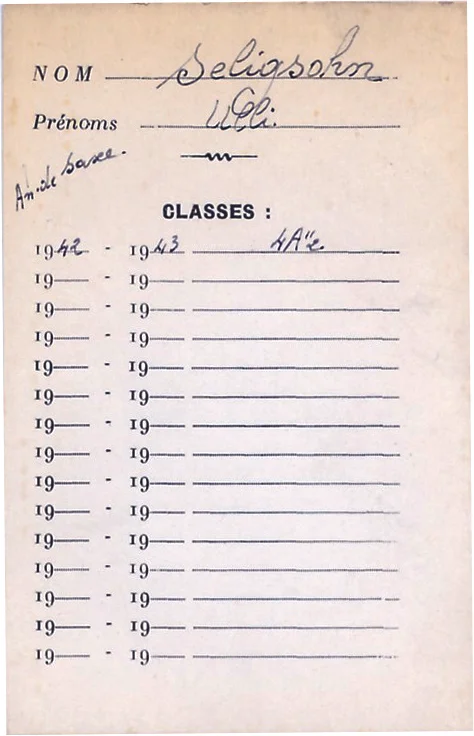 NOM Seligsohn
Prénoms Ulli.
An. de Saxe.
CLASSES :
1942 - 1943 4A"2
19 - 19
19 - 19
19 - 19
19 - 19
19 - 19
19 - 19
19 - 19
19 - 19
19 - 19
19 - 19
19 - 19
19 - 19
19 - 19
19 - 19